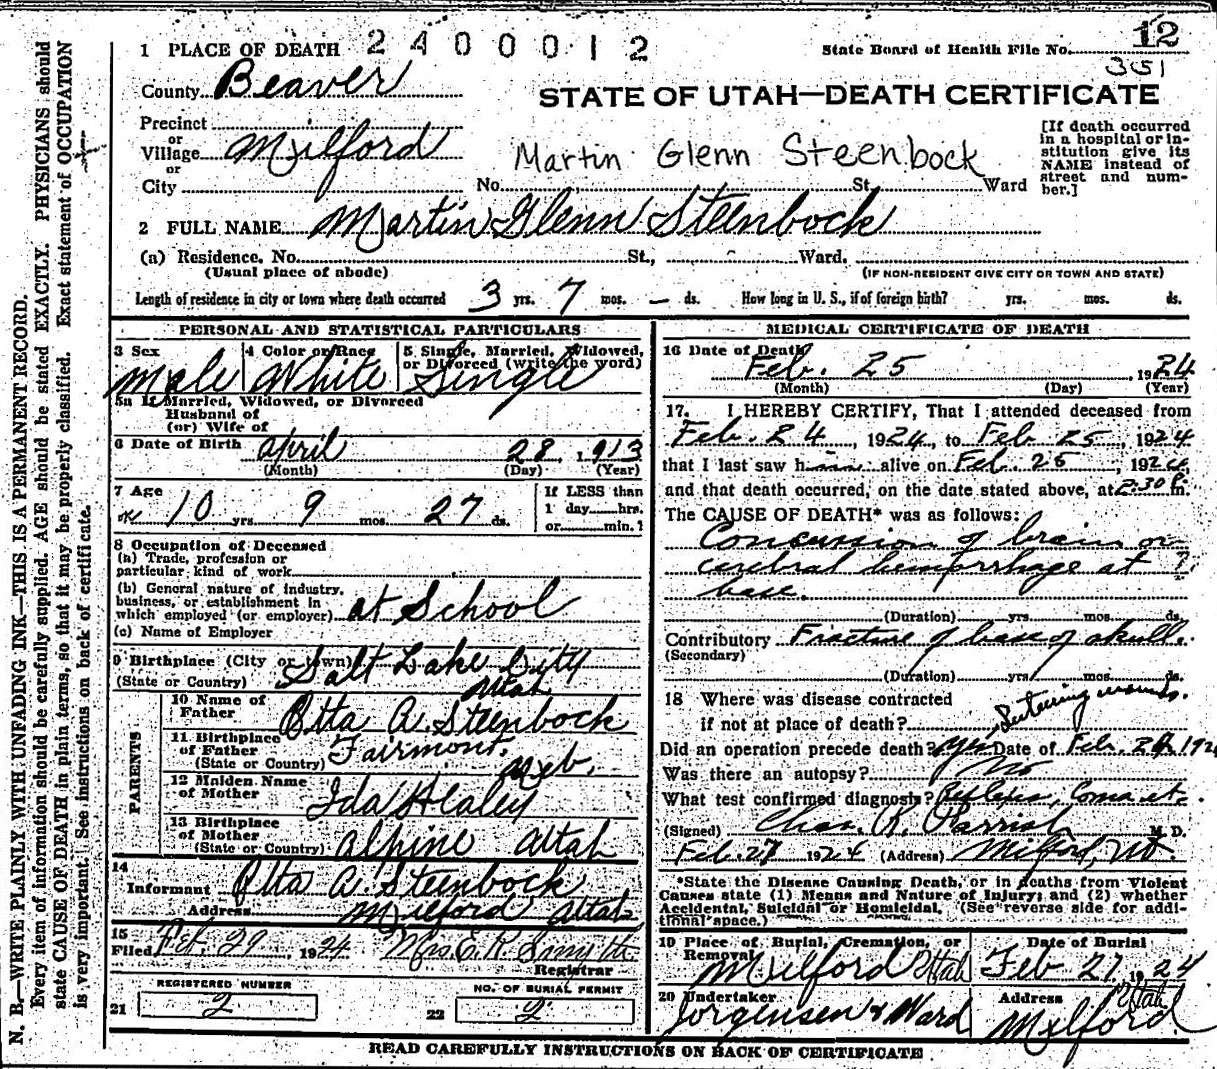 12
1 PLACE OF DEATH 2400012 State Board of Health File No.
351
County Beaver
STATE OF UTAH—DEATH CERTIFICATE
Precinct
or
Village Milford
or
City No. St. Ward
Martin Glenn Steenbock
[If death occurred in a hospital or institution give its NAME instead of street and number.]
2 FULL NAME Martin Glenn Steenbock
(a) Residence. No. St., Ward.
(Usual place of abode) (IF NON-RESIDENT GIVE CITY OR TOWN AND STATE)
Length of residence in city or town where death occurred 3 yrs. 7 mos. — ds. How long in U. S., if of foreign birth? yrs. mos. ds.
PERSONAL AND STATISTICAL PARTICULARS
3 Sex 4 Color or Race 5 Single, Married, Widowed, or Divorced (write the word)
Male White Single
5a If Married, Widowed, or Divorced
Husband of
(or) Wife of
6 Date of Birth April 28, 1913
(Month) (Day) (Year)
7 Age If LESS than
10 yrs. 9 mos. 27 ds. 1 day hrs.
or min.?
8 Occupation of Deceased
(a) Trade, profession or
particular kind of work
(b) General nature of industry,
business, or establishment in
which employed (or employer) at School
(c) Name of Employer
9 Birthplace (City or town) Salt Lake City
(State or Country) Utah
PARENTS
10 Name of
Father Otta A. Steenbock
11 Birthplace
of Father Fairmont.
(State or Country) Neb.
12 Maiden Name
of Mother Ida Healey
13 Birthplace
of Mother
(State or Country) Alpine Utah
14
Informant Otta A. Steenbock
Address Milford Utah
15
Filed Feb. 29, 1924 Mrs. E. R. Smythe
Registrar
REGISTERED NUMBER NO. OF BURIAL PERMIT
21 2 22 2
MEDICAL CERTIFICATE OF DEATH
16 Date of Death
Feb. 25, 1924
(Month) (Day) (Year)
17. I HEREBY CERTIFY, That I attended deceased from
Feb. 24, 1924, to Feb 25, 1924
that I last saw him alive on Feb. 25, 1924,
and that death occurred, on the date stated above, at 2:30 P. m.
The CAUSE OF DEATH* was as follows:
Concussion of brain or
cerebral hemorrhage at ?
base.
(Duration) yrs. mos. ds.
Contributory Fracture of base of skull.
(Secondary)
(Duration) yrs. mos. ds.
18 Where was disease contracted
if not at place of death?
Did an operation precede death? Yes Date of Feb. 1924
Was there an autopsy? No
What test confirmed diagnosis? Reflexes, Coma etc.
(Signed) Chas. R. Parrish M. D.
Feb. 27 1924 (Address) Milford, Ut.
*State the Disease Causing Death, or in deaths from Violent
Causes state (1) Means and Nature of Injury; and (2) whether
Accidental, Suicidal or Homicidal. (See reverse side for addi-
tional space.)
19 Place of Burial, Cremation, or Removal Date of Burial
Milford Utah Feb 27 1924
20 Undertaker Address
Jorgensen & Ward Milford Utah
READ CAREFULLY INSTRUCTIONS ON BACK OF CERTIFICATE
N. B.—WRITE PLAINLY WITH UNFADING INK—THIS IS A PERMANENT RECORD.
Every item of information should be carefully supplied. AGE should be stated EXACTLY. PHYSICIANS should
state CAUSE OF DEATH in plain terms, so that it may be properly classified. Exact statement of OCCUPATION
is very important. See instructions on back of certificate.